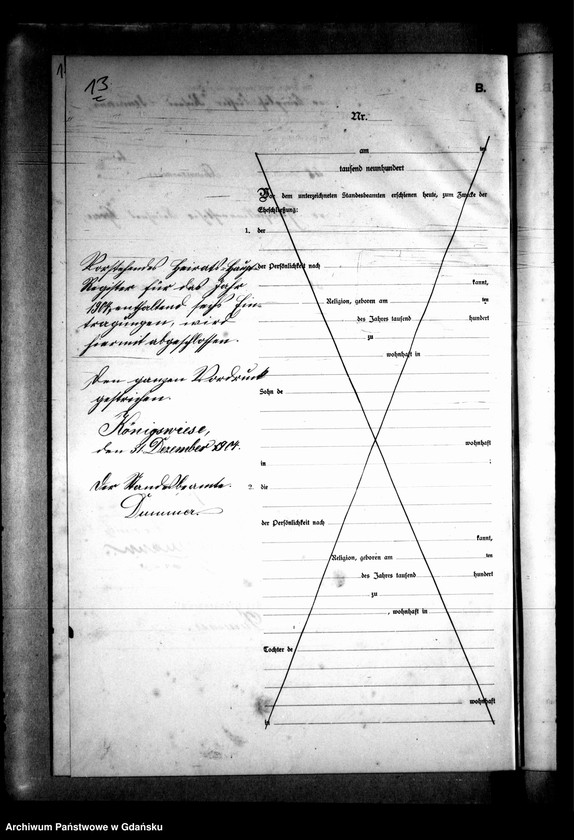 1
13
B.
Nr.
am ten
tausend neunhundert
Vor dem unterzeichneten Standesbeamten erschienen heute, zum Zwecke der
Eheschließung:
1. der
der Persönlichkeit nach
kannt,
Religion, geboren am ten
des Jahres tausend hundert
zu
wohnhaft in
Sohn de
wohnhaft
in ;
2. die
der Persönlichkeit nach
kannt,
Religion, geboren am ten
des Jahres tausend hundert
zu
, wohnhaft in
Tochter de
wohnhaft
in
Vorstehendes Heirats-Haupt-
Register für das Jahr
1904, enthaltend sechs Ein-
tragungen, wird
hiermit abgeschlossen.
Den ganzen Vordruck
gestrichen.
Königswiese,
den 31. Dezember 1904.
Der Standesbeamte.
Dummer.
Archiwum Państwowe w Gdańsku